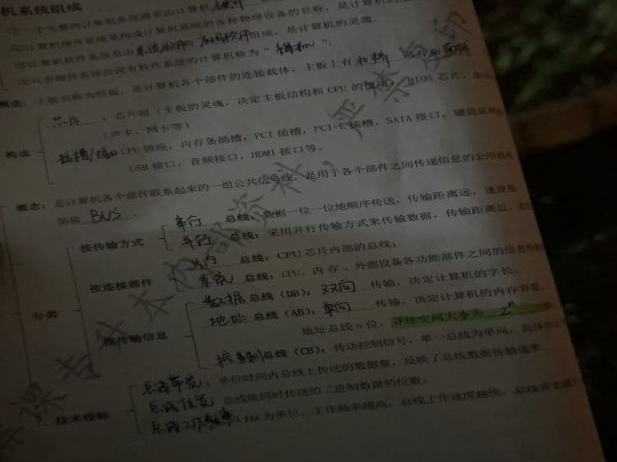 机系统组成
①一个完整的计算机系统通常由计算机硬件
②计算机硬件系统是构成计算机系统的各种物理设备的总称，是计算机的
③计算机软件系统是由系统软件和应用软件组成，是计算机的灵魂。
④只有硬件系统而没有软件系统的计算机称为“裸机”。
概念：主板也称为母板，是计算机各个部件的连接载体，主板上有
构成
芯片：芯片组（主板的灵魂，决定主板结构和CPU的使用）、BIOS芯片，
（声卡、网卡等）
插槽/接口 CPU插座，内存条插槽，PCI插槽，PCI-E插槽，SATA接口，键盘鼠标
USB接口，音频接口，HDMI接口等。
概念：是计算机各个部件联系起来的一组公共信号线，是用于各个部件之间传递信息的公用通
简称 BUS
分类
按传输方式
串行 总线：数据一位一位地顺序传送，传输距离远，速度
并行 总线：采用并行传输方式来传输数据，传输距离近，
按连接部件
片内 总线：CPU芯片内部的总线；
系统 总线：CPU、内存、外部设备各功能部件之间的信息
按传输信息
数据总线（DB）：双向 传输，决定计算机的字长。
地址 总线（AB）：单向 传输，决定计算机的内存容量
地址总线n位，寻址空间大小为 2ⁿ
控制总线（CB）：传送控制信号，单一总线为单向，总体
技术指标
总线带宽：单位时间内总线上传送的数据量，反映了总线数据传输速率
总线位宽 总线能同时传送的二进制数据的位数。
总线工作频率（Hz为单位，工作频率越高，总线工作速度越快，总线带宽越